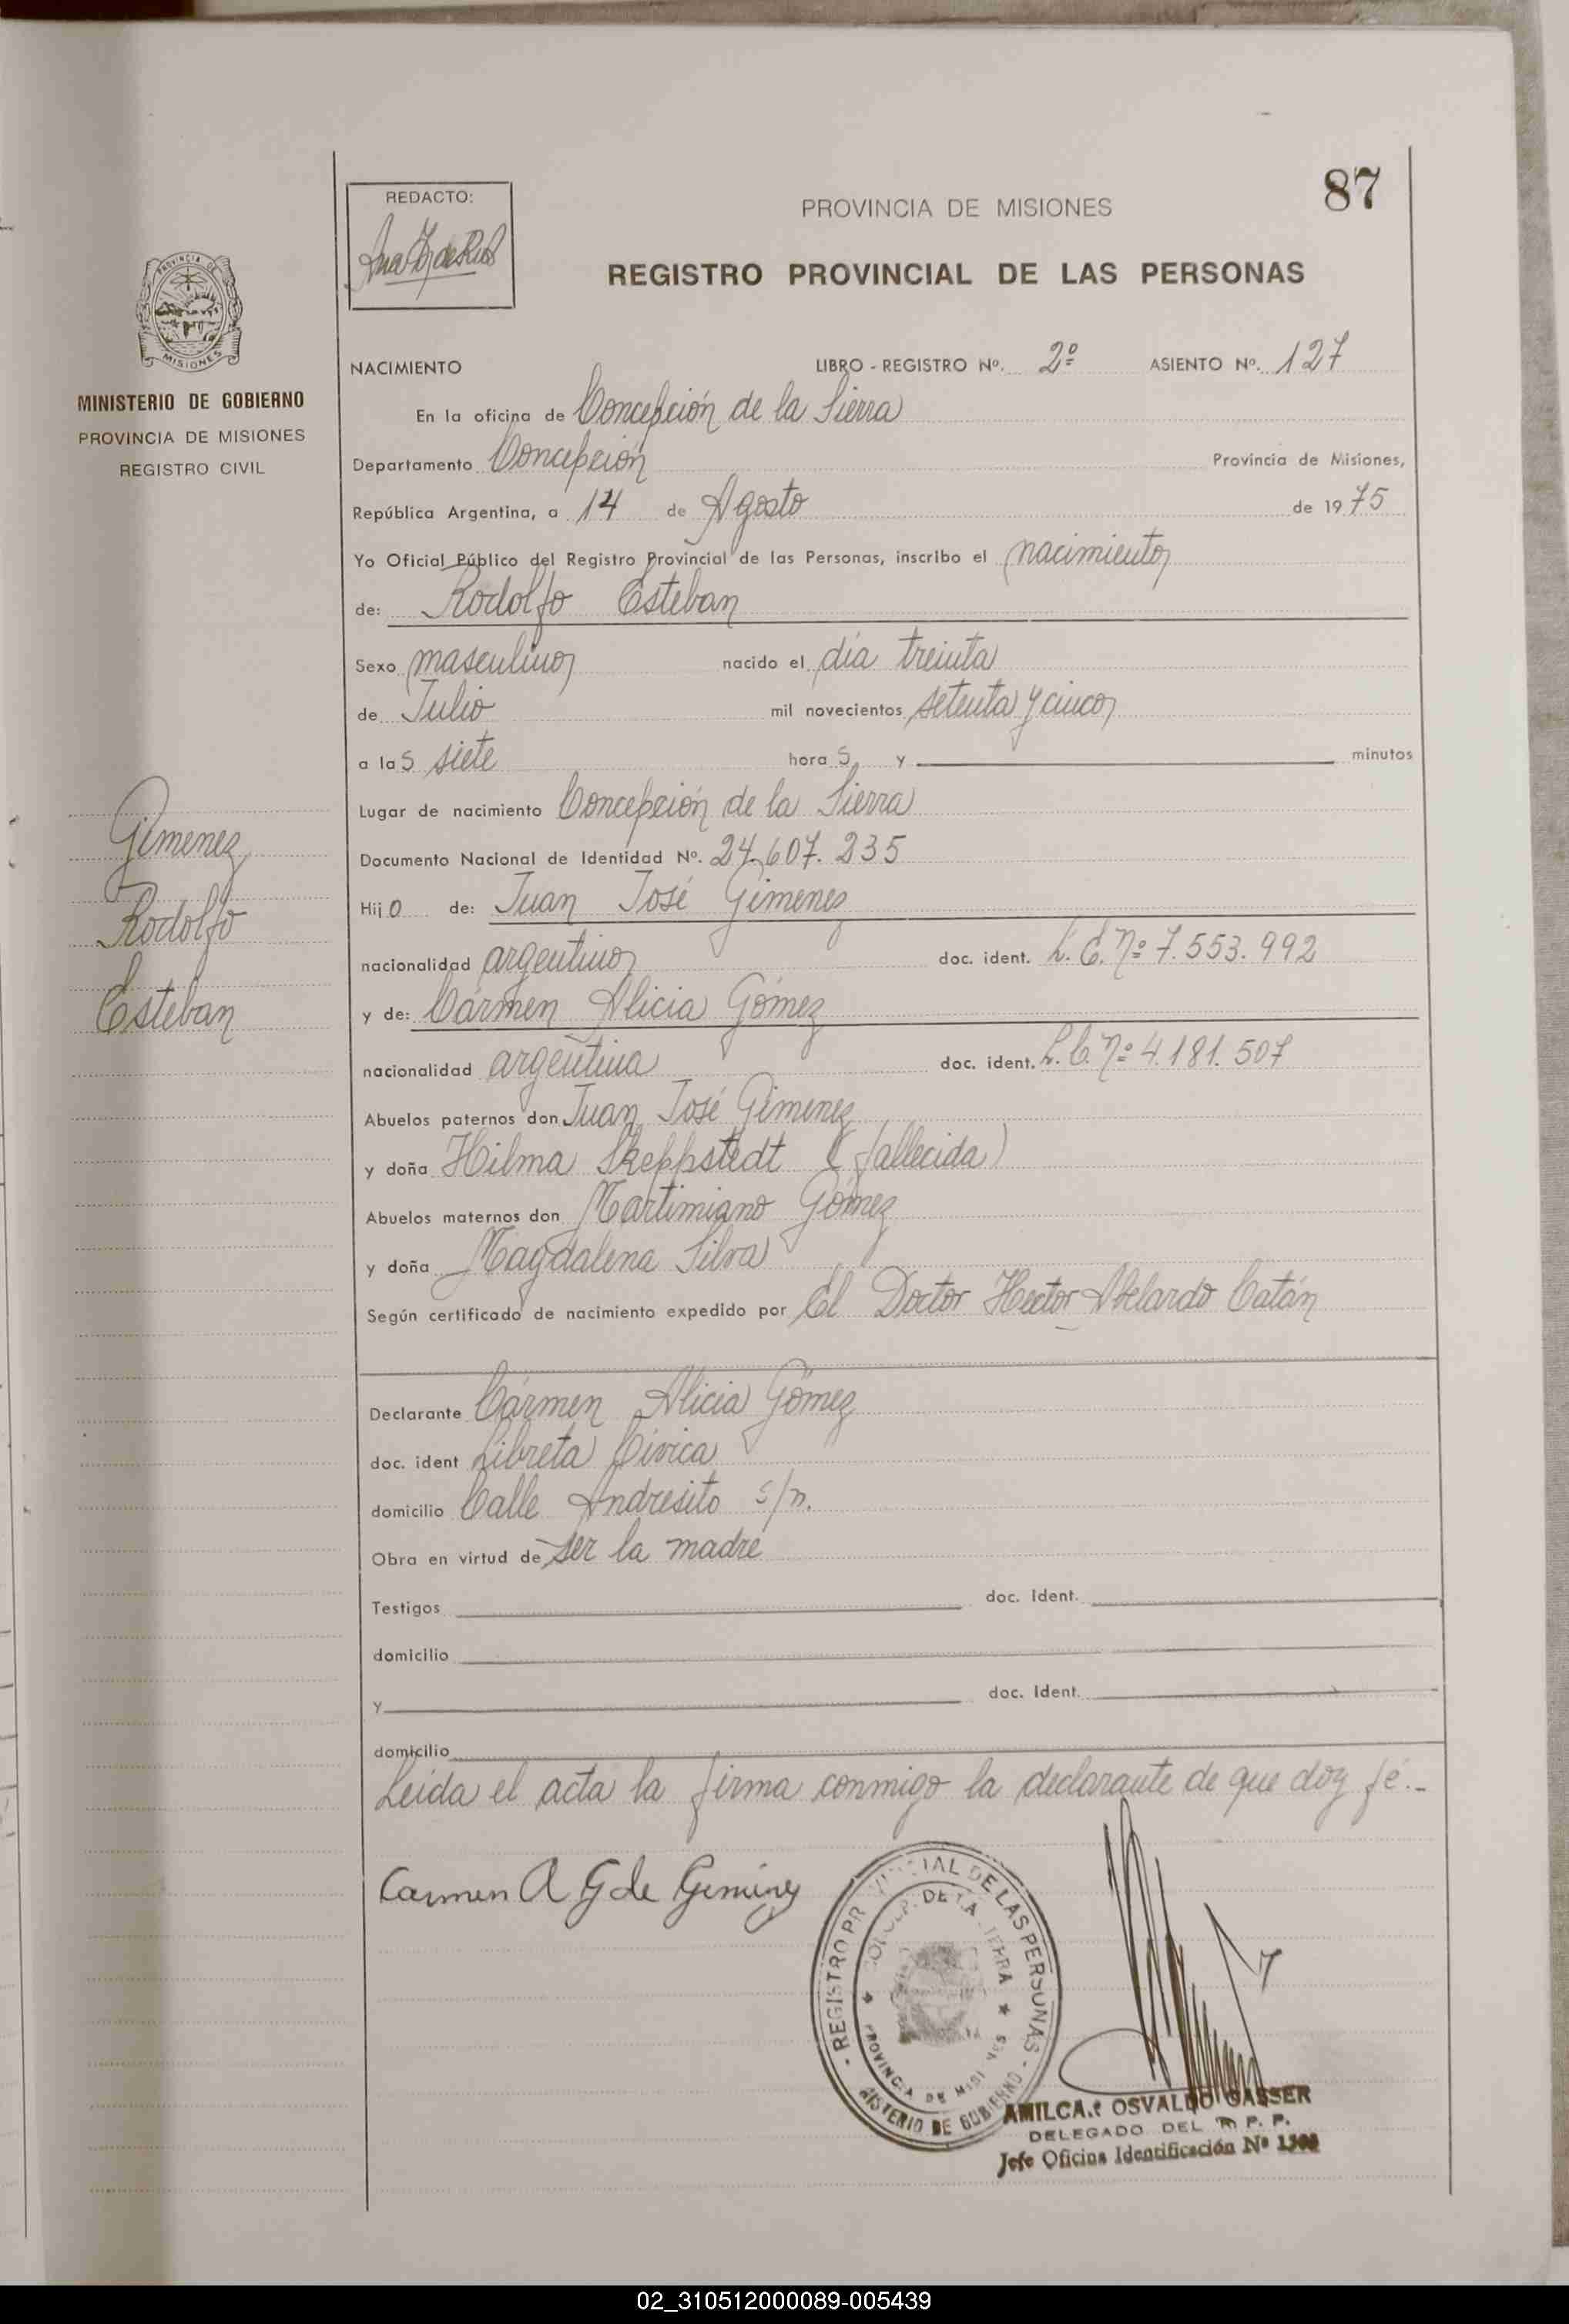 87
REDACTO:
PROVINCIA DE MISIONES
REGISTRO PROVINCIAL DE LAS PERSONAS
PROVINCIA DE
MISIONES
MINISTERIO DE GOBIERNO
PROVINCIA DE MISIONES
REGISTRO CIVIL
NACIMIENTO LIBRO - REGISTRO Nº. 2º ASIENTO Nº. 127
En la oficina de Concepción de la Sierra
Departamento Concepción Provincia de Misiones,
República Argentina, a 14 de Agosto de 1975
Yo Oficial Público del Registro Provincial de las Personas, inscribo el nacimiento
de: Rodolfo Esteban
Sexo masculino nacido el día treinta
de Julio mil novecientos setenta y cinco
a las siete horas y minutos
Lugar de nacimiento Concepción de la Sierra
Documento Nacional de Identidad Nº. 24.607.235
Hijo de: Juan José Gimenez
nacionalidad argentino doc. ident. L. E. Nº 7.553.992
y de: Cármen Alicia Gómez
nacionalidad argentina doc. ident. L. C. Nº 4.181.507
Abuelos paternos don Juan José Gimenez
y doña Hilma Skeppstedt (fallecida)
Abuelos maternos don Martimiano Gómez
y doña Magdalena Silva
Según certificado de nacimiento expedido por El Doctor Hector Abelardo Catán
Gimenez
Rodolfo
Esteban
Declarante Cármen Alicia Gómez
doc. ident Libreta Cívica
domicilio Calle Andresito s/n.
Obra en virtud de ser la madre
Testigos doc. Ident.
domicilio
y doc. Ident.
domicilio
Leída el acta la firma conmigo la declarante de que doy fé.-
Carmen A G de Gimenez
REGISTRO PROVINCIAL DE LAS PERSONAS
DE LA
PROVINCIA DE MISIONES
MISTERIO DE GOBIERNO
AMILCAR OSVALDO GASSER
DELEGADO DEL R. P. P.
Jefe Oficina Identificación Nº
02_310512000089-005439